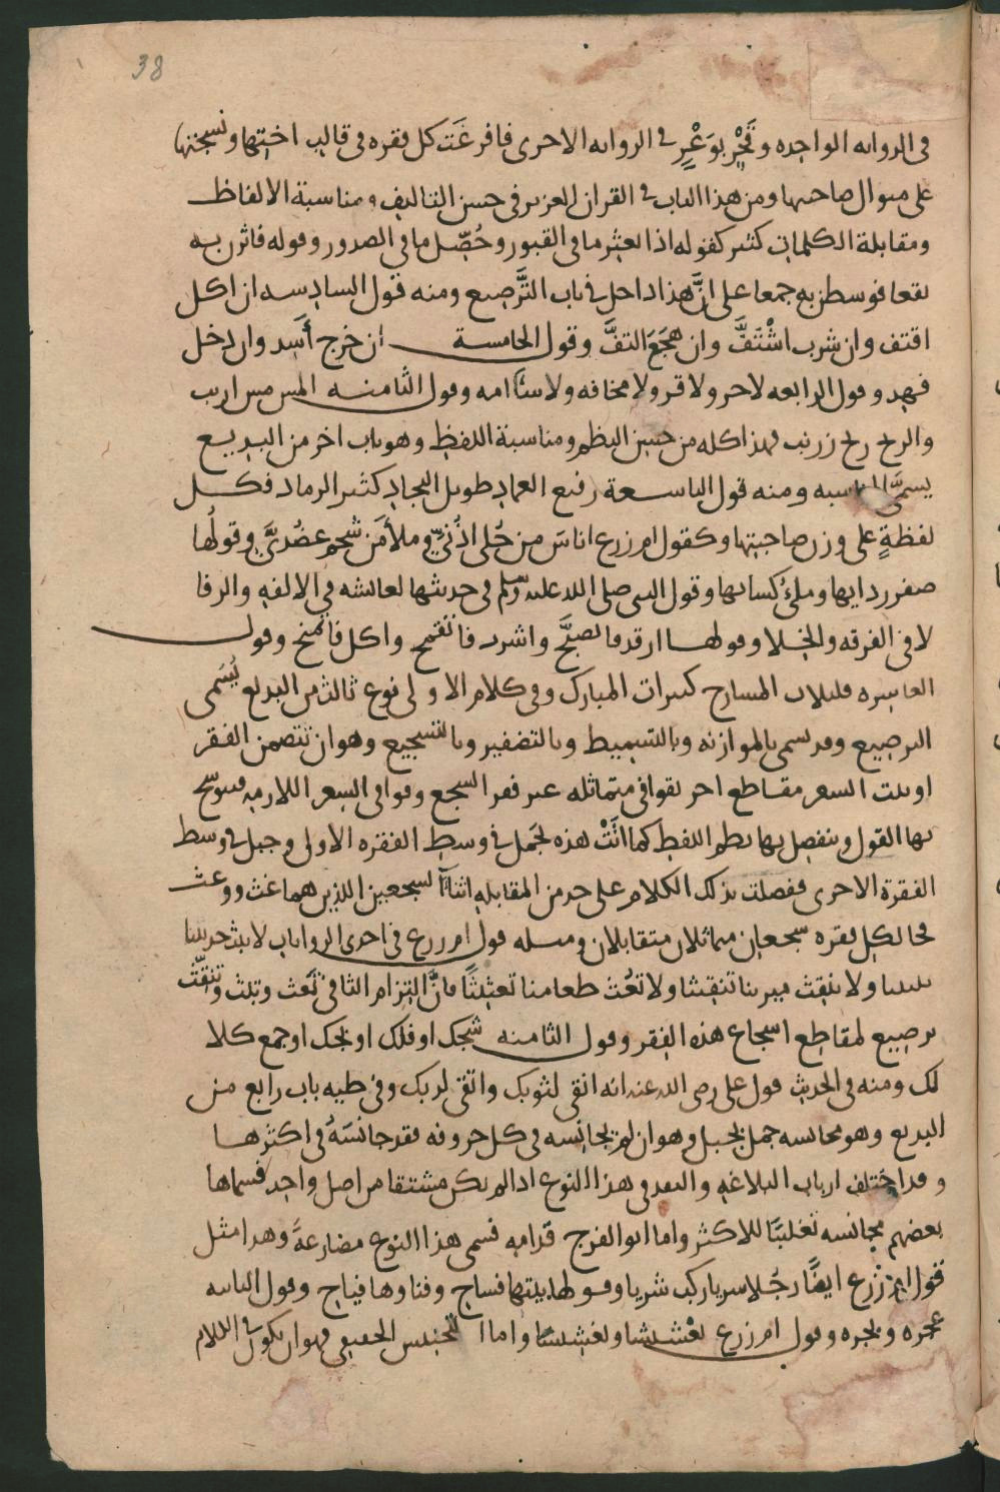 38
في الرواىه الواحده وفَحْرٍ بوَعْرٍ في الرواىه الاحرى فافرغَت كل فقره في قالب اختها ونسجتها
على منوال صاحبتها ومن هذا الباب في القران العزيز في حسن التاليف ومناسبة الالفاظ
ومقابلة الكلمات كثير كقوله اذا بعثر ما في القبور وحُصّل ما في الصدور وقوله فاثرن به
نقعا فوسطن به جمعا على انَّ هذا داخل في باب التَّرصيع ومنه قول السادسه ان اكل
اقتف وان شرب اشْتَفَّ وان هَجَعَ التفَّ وقول الخامسة ان خرج أَسِد وان دخل
فهد وقول الرابعه لا حر ولا قر ولا مخافه ولا سآمه وقول الثامنه المس مس ارنب
والريح ريح زرنب فهذا كله من حسن النظم ومناسبة اللفظ وهو باب اخر من البديع
يسمَّى المناسبه ومنه قول التاسعة رفيع العماد طويل النجاد كثير الرماد فكل
لفظةٍ على وزن صاحبتها وكقول ام زرع اناسَ من حُلى اذُنيَّ وملأ من شحم عضُديَّ وقولُها
صفر ردايها وملئُ كسائها وقول النبي صلى الله عليه وسلم في حديثها لعائشه في الالفه والرفا
لا في الفرقه والخلا وقولها ارقد فاتصبَّح واشرب فاتقمح واكل فاتمنح وقول
العاشره قليلات المسارح كثيرات المبارك وفي كلام الاولى نوع ثالث من البديع يُسَمى
الترصيع وقد يسمى بالموازنه وبالتسميط وبالتضفير وبالتسجيع وهو ان تتضمن الفقر
او بيت الشعر مقاطع اخر بقوافي متماثله غير فقر السجع وقوافي الشعر اللازمه فيتوشح
بها القول وينفصل بها نظم اللفظ كما اتَتْ هذه بجَمل في وسط الفقره الاولى وجبل في وسط
الفقرة الاخرى ففصلت بذلك الكلام على جزء من المقابله اثنا السجعين اللذين هما غث ووعث
فجا لكل فقره سجعان متماثلان متقابلان ومثله قول ام زرع في احدى الروايات لا تبث حديثنا
تبثيثا ولا تنقث ميرتنا تنقيثا ولا تعُث طعامنا تعثيثًا فانَّ التزام الثا في تعث وتبث وتنقِّث
ترصيع لمقاطع اسجاع هذه الفقر وقول الثامنه شجك او فلك او بجك او جمع كلا
لك ومنه في الحديث قول على رضى الله عنه انه انقى لثوبك واتقى لربك وفي طيه باب رابع من
البديع وهو مجانسه جمل بجبل وهو ان لم يجانسه في كل حروفه فقد جانسَهُ في اكثرها
وقد اختلف ارباب البلاغه والنقد في هذا النوع اذا لم يكن مشتقا من اصل واحد فسماها
بعضهم مجانسه تغليبًا للاكثر واما ابو الفرج قدامه فسمى هذا النوع مضارعةً وهذا مثل
قول ام زرع ايضًا رجُلا سريا ركب شريا وقولها بيتها فساح وفناوها فياح وقول الثانيه
عجره وبجره وقول ام زرع تعشيشا وتغشيشا واما التجنيس الحقيقي فهو ان يكون في الكلام